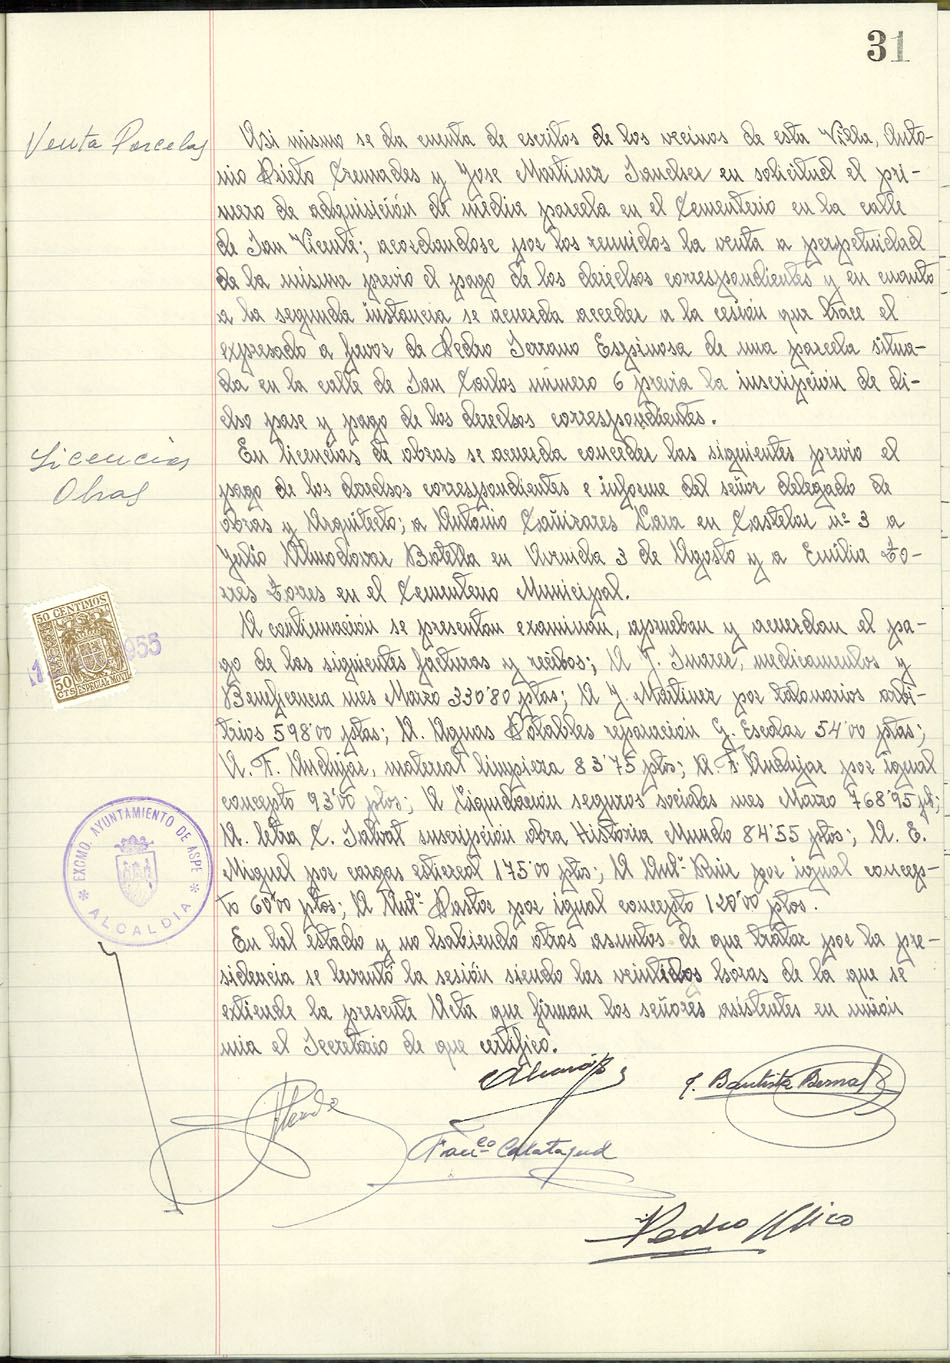 31
Venta Parcelas
Asi mismo se da cuenta de escritos de los vecinos de esta Villa, Anto-
nio Prieto Cremades y Jose Martinez Sanchez en solicitud el pri-
mero de adquisición de media parcela en el Cementerio en la calle
de San Vicente; acordandose por los reunidos la venta a perpetuidad
de la misma previo el pago de los derechos correspondientes y en cuanto
a la segunda instancia se acuerda acceder a la cesión que hace el
expresado a favor de Pedro Serrano Espinosa de una parcela situa-
da en la calle de San Carlos número 6 previa la inscripción de di-
cho pase y pago de los derechos correspondientes.
Licencias
Obras
En licencias de obras se acuerda conceder las siguientes previo el
pago de los derechos correspondientes e informe del señor delegado de
obras y Arquitecto; a Antonio Cañizares Lara en Castelar nº 3 a
Julio Almodovar Botella en Avenida 3 de Agosto y a Emilia To-
rres Torres en el Cementerio Municipal.
A continuación se presentan examinan, aprueban y acuerdan el pa-
go de las siguientes facturas y recibos; A J. Suarez, medicamentos y
Beneficencia mes Marzo 330'80 ptas; A J. Martinez por talonarios arbi-
trios 598'00 ptas; A. Aguas Potables reparación G. Escolas 54'00 ptas;
A. F. Andujar, material limpieza 83'75 ptas; A. F. Andujar por igual
concepto 93'00 ptas; A Liquidación seguros sociales mes Marzo 768'95 pts;
A. letra C. Salvat suscripción obra Historia Mundo 84'55 ptas; A. E.
Miguel por cargas estiercol 175'00 ptas; A Antº Ruiz por igual concep-
to 60'00 ptas; A Antº Pastor por igual concepto 120'00 ptas.
En tal estado y no habiendo otros asuntos de que tratar por la pre-
sidencia se levantó la sesión siendo las veintidos horas de la que se
extiende la presente Acta que firman los señores asistentes en unión
mia el Secretario de que certifico.
50 CENTIMOS
50 CTS ESPECIAL MOVIL
955
EXCMO. AYUNTAMIENTO DE ASPE
* ALCALDIA *
J. Bautista Bernal
Francº Calatayud
Pedro Mico